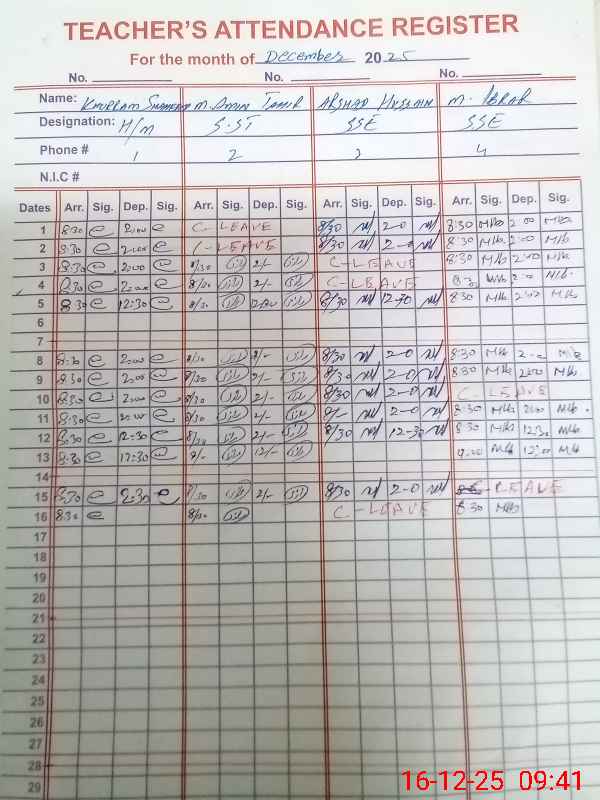 TEACHER'S ATTENDANCE REGISTER
For the month of December 2025
No. No. No.
Name: M. Amin Tahir Arshad Hussain M. Ibrar
Designation: H/m S.ST SSE SSE
Phone # 1 2 3 4
N.I.C #
Dates Arr. Sig. Dep. Sig. Arr. Sig. Dep. Sig. Arr. Sig. Dep. Sig. Arr. Sig. Dep. Sig.
1 8:30 2:00 C-LEAVE 8/30 2-0 8:30 2:00
2 8:30 2:00 C-LEAVE 8/30 2-0 8:30 2:00
3 8:30 2:00 8/30 2/- C-LEAVE 8:30 2:00
4 8:30 2:00 8/30 2/- C-LEAVE 2:00
5 8:30 12:30 8/30 8/30 12-30 8:30 2:00
6
7
8 8:30 2:00 8/30 2/- 8/30 2-0 8:30
9 8:30 2:00 8/30 2/- 8/30 2-0 8:30 2:00
10 8:30 2:00 8/30 2/- 8/30 2-0 C-LEAVE
11 8:30 2:00 8/30 2/- 8/- 2-0 8:30 2:00
12 8:30 12:30 8/30 2/- 8/30 12-30 8:30 12:30
13 8:30 12:30 9/- 12/- 9:00 12:00
14
15 8:30 2:30 8/30 2/- 8/30 2-0 C-LEAVE
16 8:30 8/30 C-LEAVE 8:30
17
18
19
20
21
22
23
24
25
26
27
28
29
16-12-25 09:41